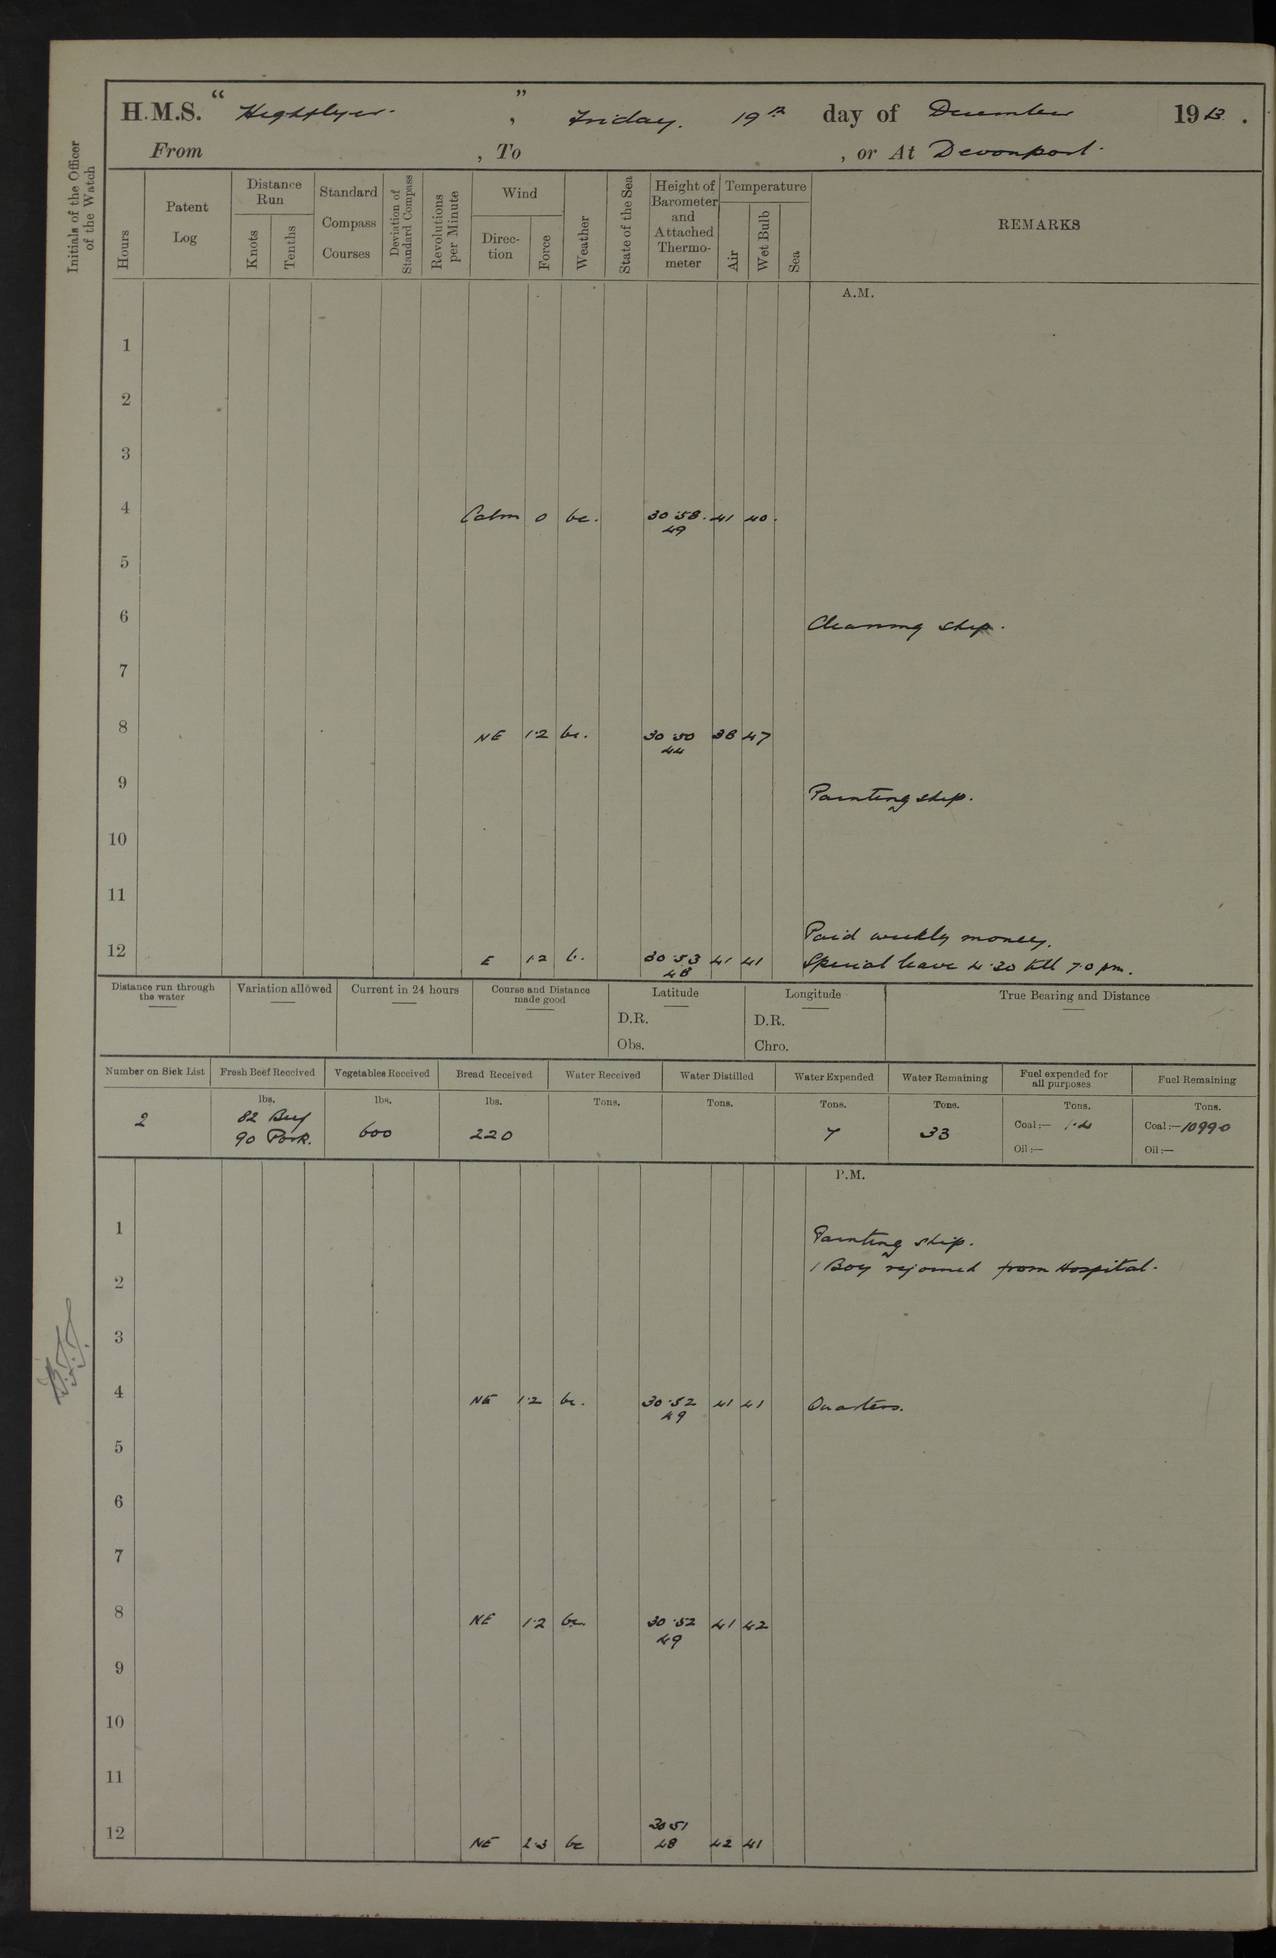 H.M.S. " Highflyer. " , Friday. 19th day of December 1913.
From , To , or At Devonport.
Initials of the Officer of the Watch
Hours
Patent Log
Distance Run
Knots
Tenths
Standard Compass Courses
Deviation of Standard Compass
Revolutions per Minute
Wind
Direction
Force
Weather
State of the Sea
Height of Barometer and Attached Thermometer
Temperature
Air
Wet Bulb
Sea
REMARKS
A.M.
1
2
3
4 Calm 0 bc. 30.58. 41 40.
49
5
6 Cleaning ship.
7
8 NE 1.2 bc. 30 50 38 47
44
9 Painting ship.
10
11
Paid weekly money.
12 E 1.2 b. 30.53 41 41 Special leave 4.30 till 7.0 pm.
48
Distance run through the water
Variation allowed
Current in 24 hours
Course and Distance made good
Latitude
D.R.
Obs.
Longitude
D.R.
Chro.
True Bearing and Distance
Number on Sick List
2
Fresh Beef Received
lbs.
82 Beef
90 Pork.
Vegetables Received
lbs.
600
Bread Received
lbs.
220
Water Received
Tons.
Water Distilled
Tons.
Water Expended
Tons.
7
Water Remaining
Tons.
33
Fuel expended for all purposes
Tons.
Coal:— 1.4
Oil:—
Fuel Remaining
Tons.
Coal:— 10990
Oil:—
P.M.
1 Painting ship.
1 Boy rejoined from Hospital.
2
3
4 NE 1.2 bc. 30.52 41 41 Quarters.
49
5
6
7
8 NE 1.2 bc 30.52 41 42
49
9
10
11
30 51
12 NE 2.3 bc 48 42 41